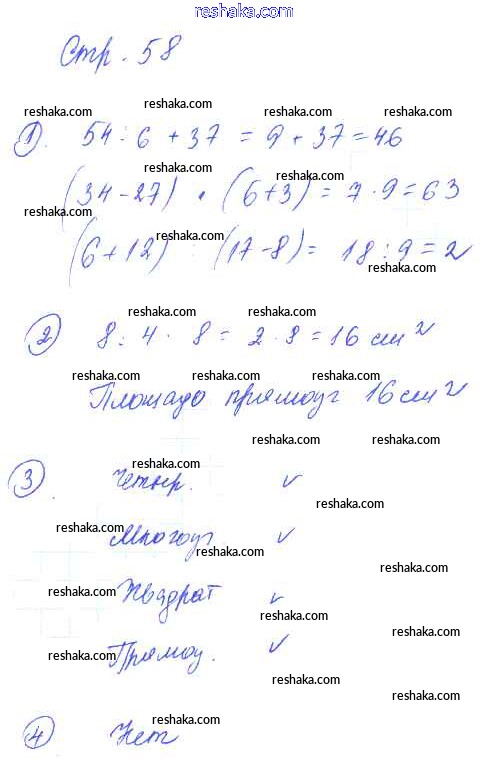 www.reshaka.com
Стр. 58
reshaka.com reshaka.com reshaka.com reshaka.com
1). 54 : 6 + 37 = 9 + 37 = 46
reshaka.com reshaka.com
(34 - 27) · (6 + 3) = 7 · 9 = 63
reshaka.com reshaka.com
(6 + 12) : (17 - 8) = 18 : 9 = 2
reshaka.com
reshaka.com reshaka.com
2) 8 : 4 · 8 = 2 · 8 = 16 см²
reshaka.com reshaka.com reshaka.com
Площадь прямоуг 16 см²
reshaka.com reshaka.com
reshaka.com
3) Четыр. ✓
reshaka.com
reshaka.com
Многоуг. ✓
reshaka.com
reshaka.com
Квадрат ✓
reshaka.com
reshaka.com
Прямоу. ✓
reshaka.com
reshaka.com
reshaka.com
reshaka.com
4) Нет